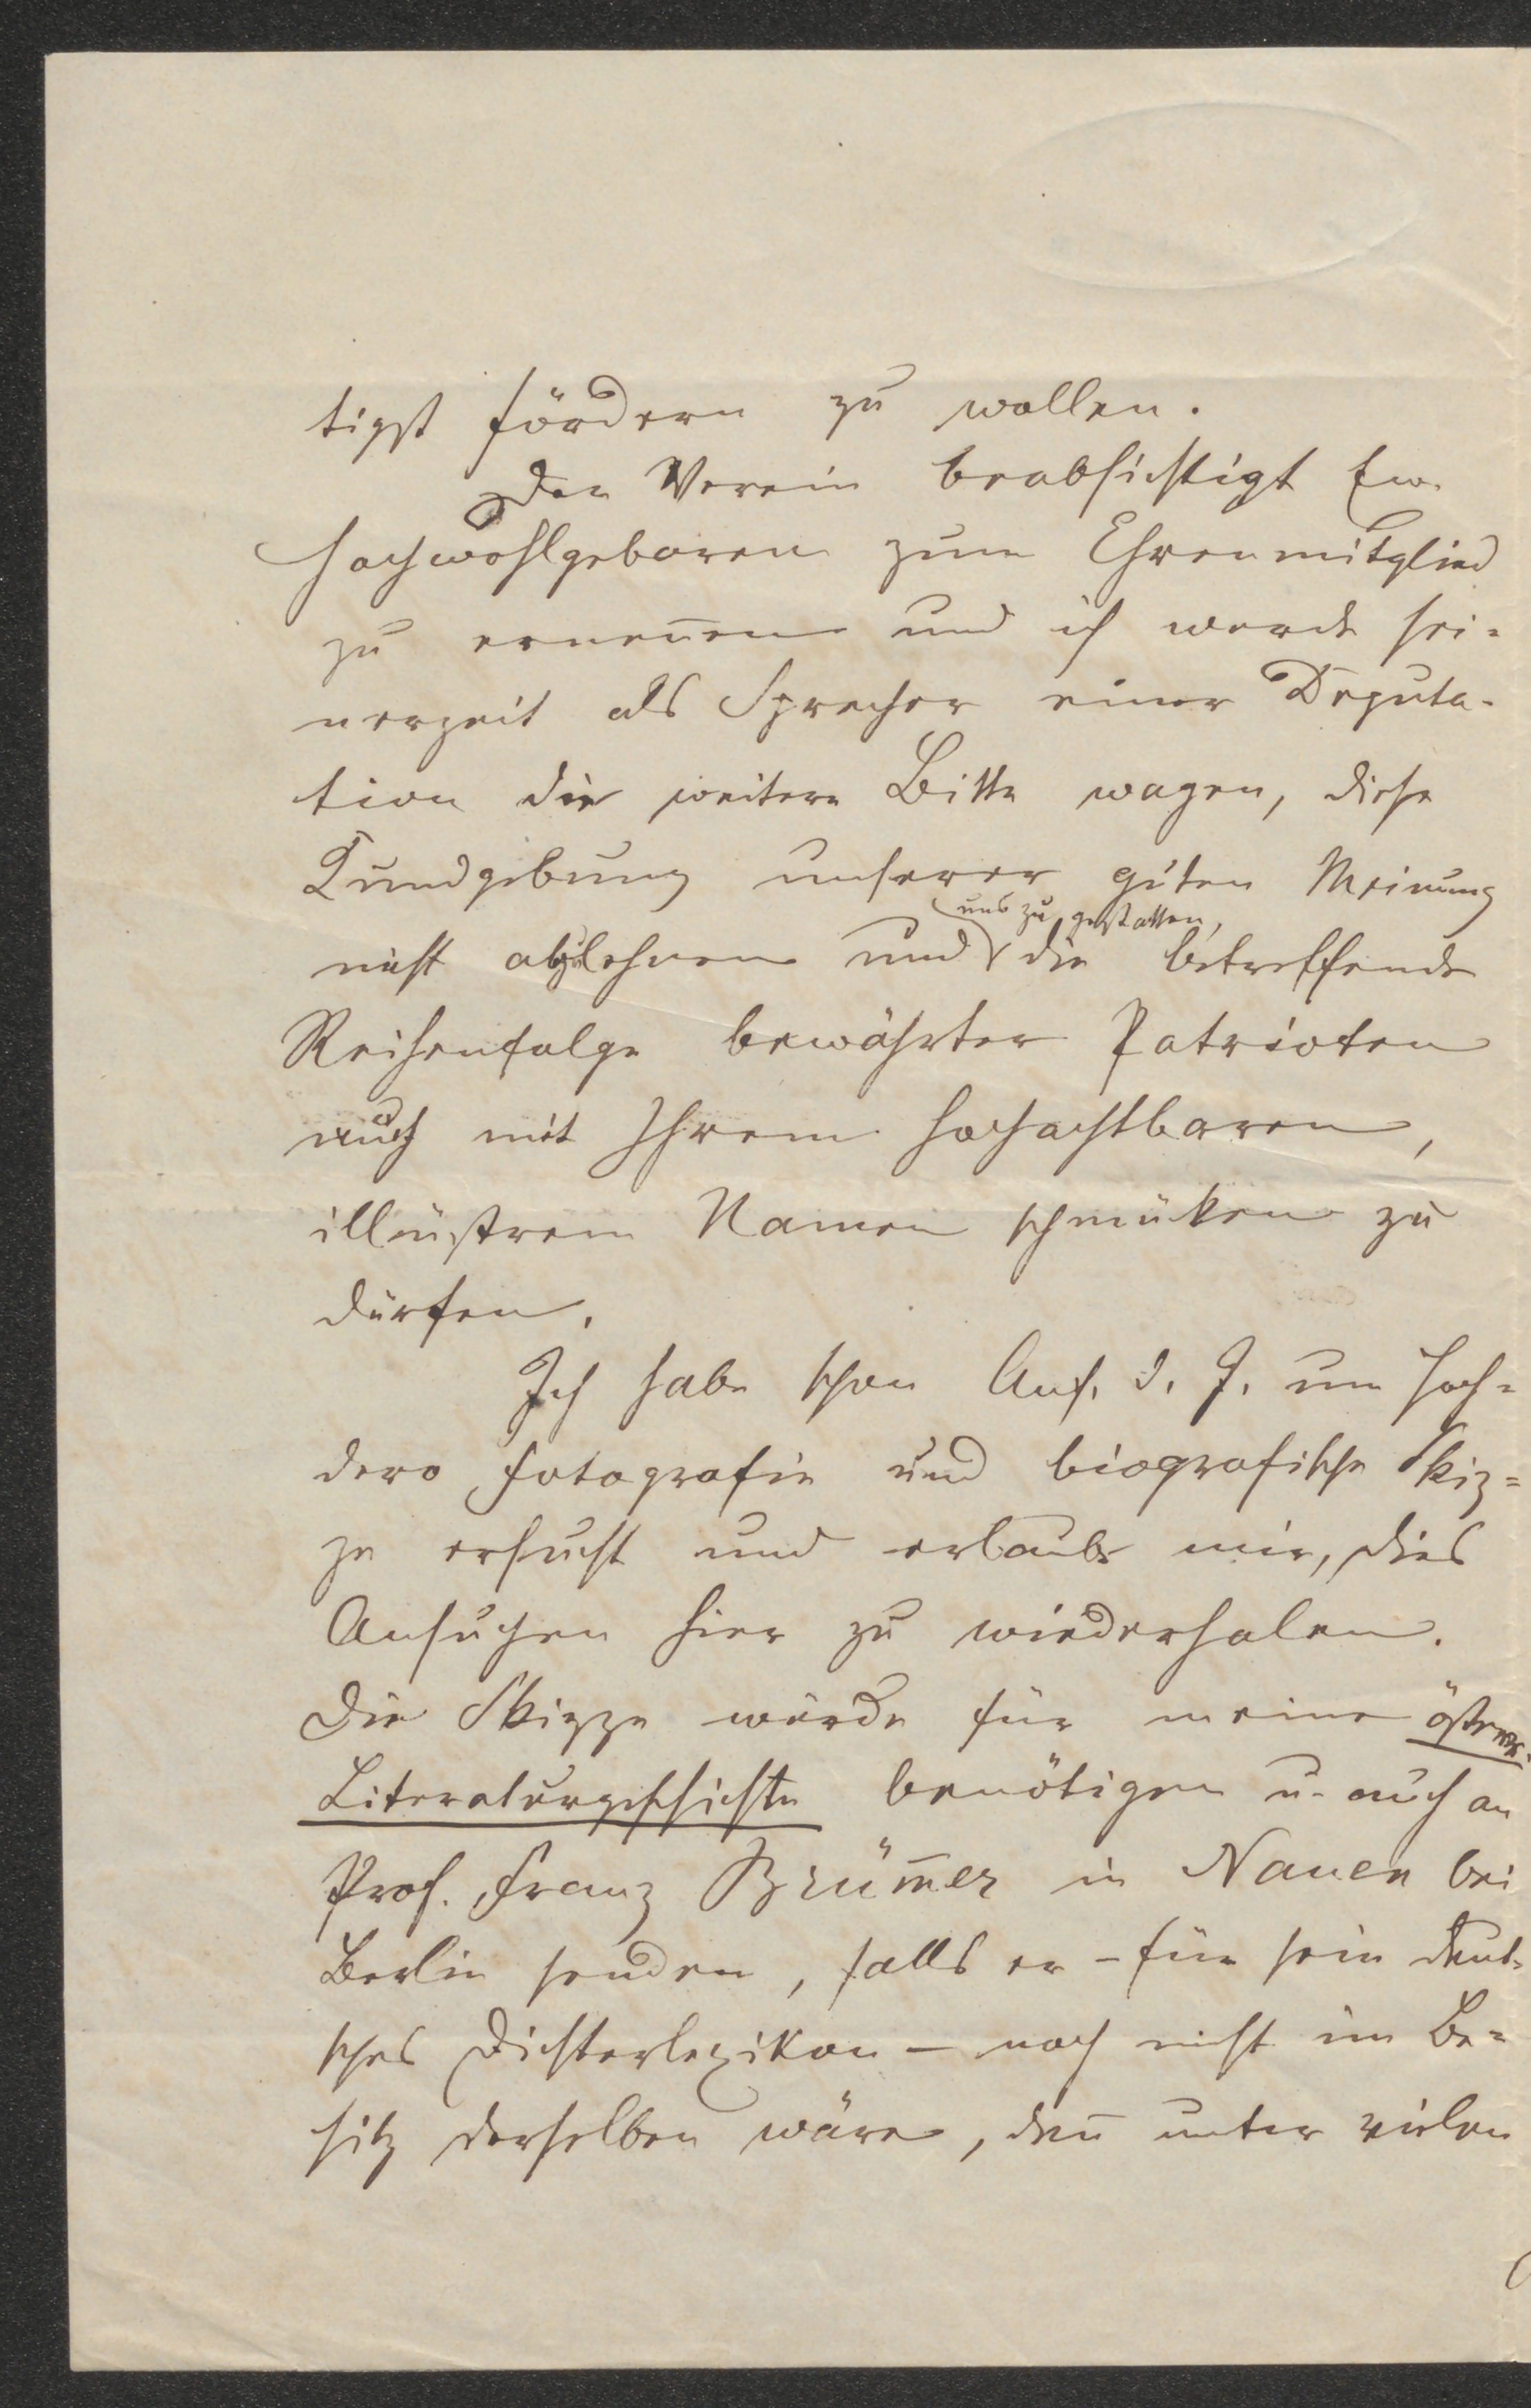 tigst fördern zu wollen.
Der Verein beabsichtigt Ew.
Hochwohlgeboren zum Ehrenmitglied
zu ernen̄en und ich werde sei-
nerzeit als Sprecher einer Deputa-
tion die weitere Bitte wagen, diese
Kundgebung unserer guten Meinung
uns zu gestatten,
nicht abzulehnen und die betreffende
Reihenfolge bewährter Patrioten
auch mit Ihrem hochachtbaren,
illustrem Namen schmüken zu
dürfen.
Ich habe schon Anf. d. J. um Hoch-
dero Fotografie und biografische Skiz-
ze ersucht und erlaube mir, dies
Ansuchen hier zu wiederholen.
Die Skizze würde für meine österr.
Literaturgeschichte benötigen u. auch an
Prof. Franz Brüm̄er in Nauen bei
Berlin senden, falls er – für sein deut-
sches Dichterlexikon – noch nicht im Be-
sitz derselben wäre, den̄ unter vielen